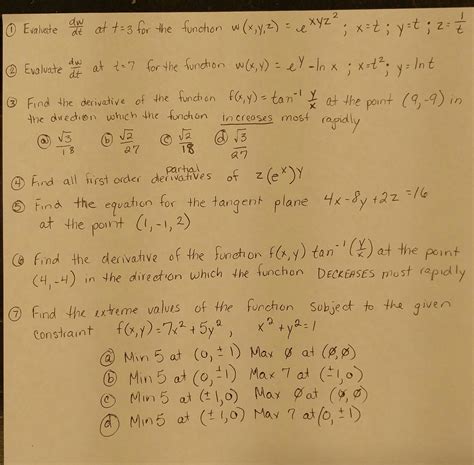 ① Evaluate dw/dt at t=3 for the function w(x,y,z) = e^xyz² ; x=t ; y=t ; z=1/t
② Evaluate dw/dt at t=7 for the function w(x,y) = e^y - ln x ; x=t² ; y=lnt
③ Find the derivative of the function f(x,y) = tan⁻¹ y/x at the point (9,-9) in
the direction which the function Increases most rapidly
ⓐ √3/18 ⓑ √2/27 ⓒ √2/18 ⓓ √3/27
④ Find all first order partial derivatives of z(e^x)^y
⑤ Find the equation for the tangent plane 4x-8y+2z=16
at the point (1,-1,2)
⑥ Find the derivative of the function f(x,y) tan⁻¹(y/x) at the point
(4,-4) in the direction which the function DECREASES most rapidly
⑦ Find the extreme values of the function subject to the given
constraint f(x,y)=7x²+5y², x²+y²=1
ⓐ Min 5 at (0,±1) Max ∅ at (∅,∅)
ⓑ Min 5 at (0,±1) Max 7 at (±1,0)
ⓒ Min 5 at (±1,0) Max ∅ at (∅,∅)
ⓓ Min 5 at (±1,0) Max 7 at (0,±1)